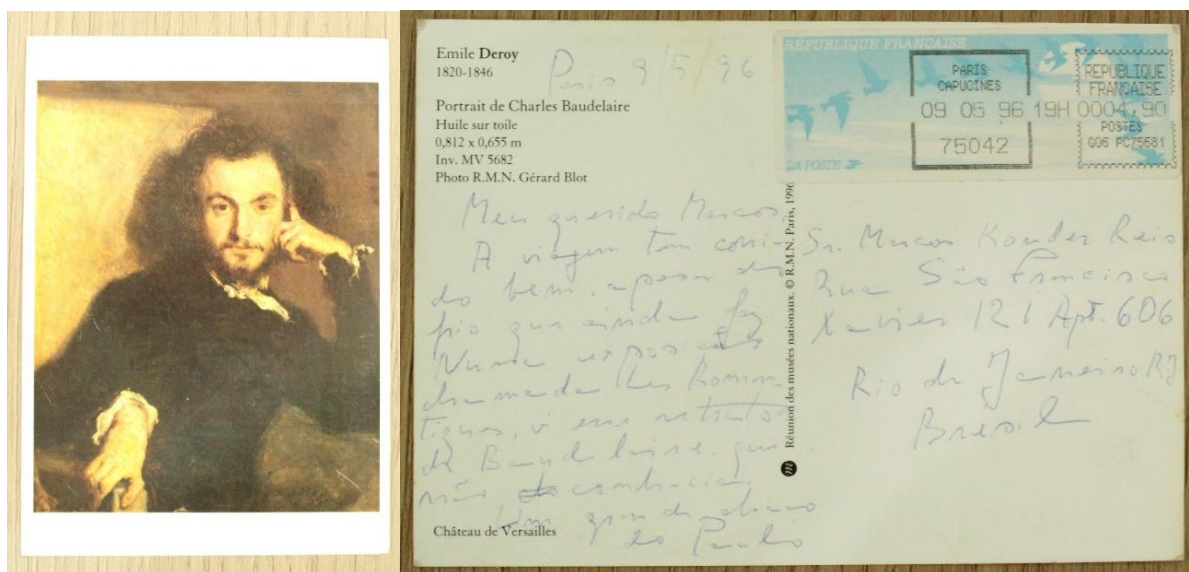 Emile Deroy
1820-1846
Paris 9/5/96
Portrait de Charles Baudelaire
Huile sur toile
0,812 x 0,655 m
Inv. MV 5682
Photo R.M.N. Gérard Blot
Meu querido Marcos,
A viagem tem corri-
do bem, apesar do
frio que ainda faz.
Numa exposição
chamada Les Roman-
tiques, vi esse retrato
de Baudelaire, que
não conhecia.
Um grande abraço
do Paulo
Château de Versailles
Réunion des musées nationaux. © R.M.N. Paris, 1996
m
RÉPUBLIQUE FRANÇAISE
LA POSTE
PARIS
CAPUCINES
09 05 96 19H
75042
REPUBLIQUE
FRANÇAISE
0004,90
POSTES
G06 PC75681
Sr. Marcos Konder Reis
Rua São Francisco
Xavier 121 Apt. 606
Rio de Janeiro RJ
Brésil